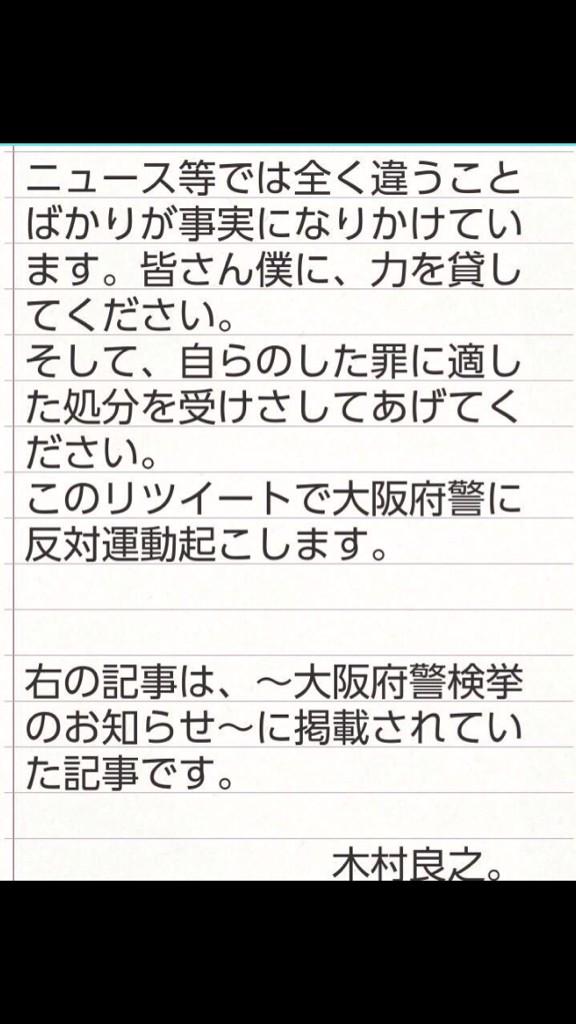 ニュース等では全く違うこと
ばかりが事実になりかけてい
ます。皆さん僕に、力を貸し
てください。
そして、自らのした罪に適し
た処分を受けさしてあげてく
ださい。
このリツイートで大阪府警に
反対運動起こします。
右の記事は、〜大阪府警検挙
のお知らせ〜に掲載されてい
た記事です。
木村良之。